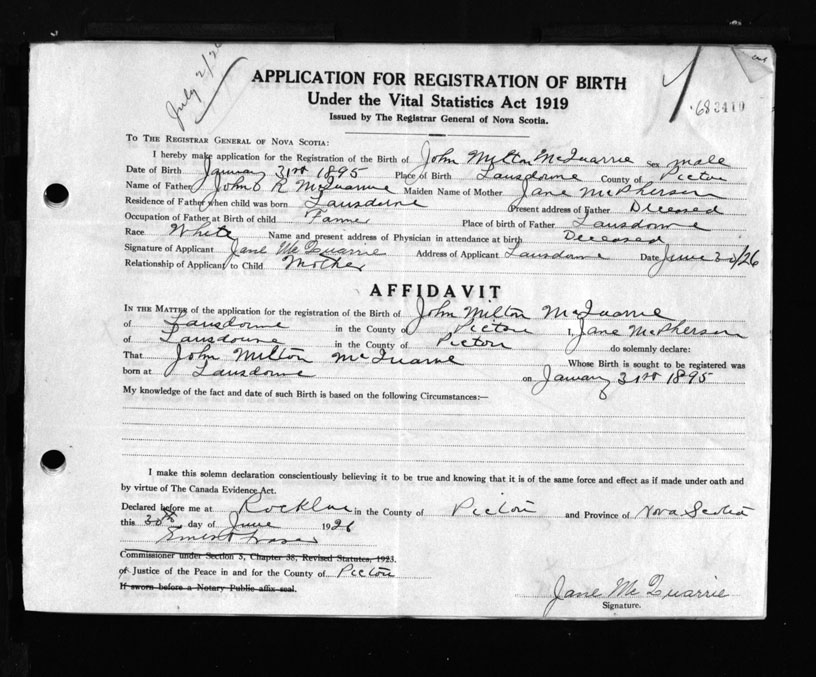 July 2/26
APPLICATION FOR REGISTRATION OF BIRTH
Under the Vital Statistics Act 1919
Issued by The Registrar General of Nova Scotia.
TO THE REGISTRAR GENERAL OF NOVA SCOTIA:
I hereby make application for the Registration of the Birth of John Milton McQuarrie Sex male
Date of Birth January 31st 1895 Place of Birth Lansdowne County of Pictou
Name of Father John R McQuarrie Maiden Name of Mother Jane McPherson
Residence of Father when child was born Lansdowne Present address of Father Deceased
Occupation of Father at Birth of child Farmer Place of birth of Father Lansdowne
Race White Name and present address of Physician in attendance at birth Deceased
Signature of Applicant Jane McQuarrie Address of Applicant Lansdowne Date June 30/26
Relationship of Applicant to Child Mother
AFFIDAVIT
IN THE MATTER of the application for the registration of the Birth of John Milton McQuarrie
of Lansdowne in the County of Pictou I, Jane McPherson
of Lansdowne in the County of Pictou do solemnly declare:
That John Milton McQuarrie Whose Birth is sought to be registered was
born at Lansdowne on January 31st 1895
My knowledge of the fact and date of such Birth is based on the following Circumstances:—
I make this solemn declaration conscientiously believing it to be true and knowing that it is of the same force and effect as if made under oath and
by virtue of The Canada Evidence Act.
Declared before me at Rocklin in the County of Pictou and Province of Nova Scotia
this 30th day of June 1926
Ernest Fraser
Commissioner under Section 5, Chapter 38, Revised Statutes, 1923.
of Justice of the Peace in and for the County of Pictou
If sworn before a Notary Public affix seal.
Jane McQuarrie
Signature.